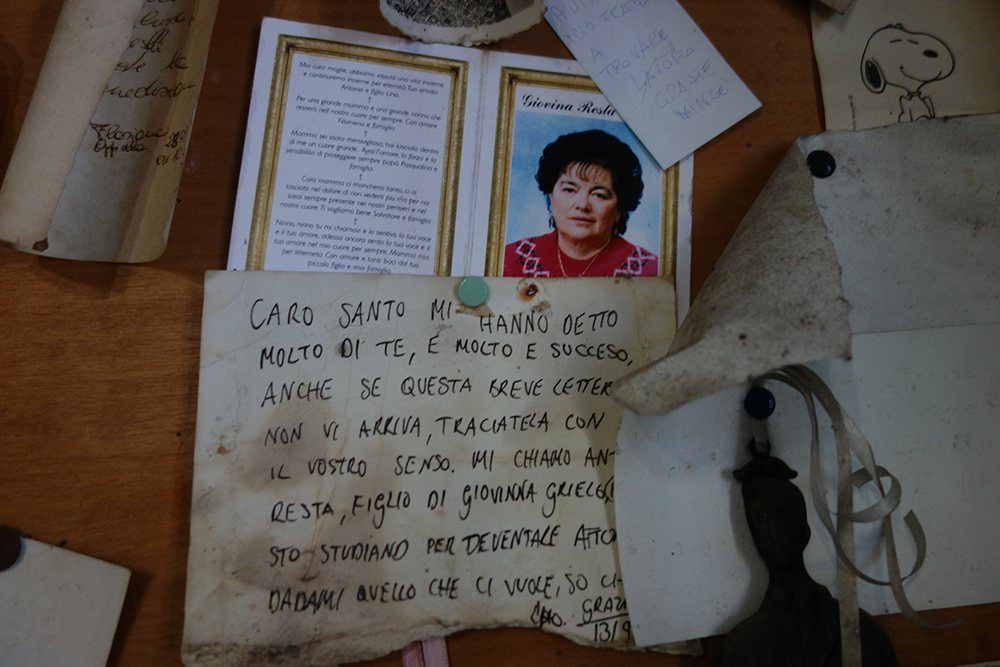 Mio caro moglie, abbiamo vissuto una vita insieme
e continueremo insieme per eternità. Tuo amato
Antonio e figlio Lino.
Per una grande mamma e una grande nonna che
resterà nel nostro cuore per sempre. Con amore
Filomena e famiglia
Mamma sei stata meravigliosa, hai lasciato dentro
di me un cuore grande. Avrò l'amore, la forza e la
sensibilità di proteggere sempre papà. Pasqualina e
famiglia.
Cara mamma ci mancherai tanto, ci ai
lasciato nel dolore di non vederti più vivi per noi
sarai sempre presente nei nostri pensieri e nel
nostro cuore. Ti vogliamo bene Salvatore e famiglia
Ninno, ninno tu mi chiamavi e io sentivo la tua voce
e il tuo amore, adesso ancora sento la tua voce e il
tuo amore nel mio cuore per sempre. Mamma mia
per l'eterneto. Con amore e tanti baci dal tuo
piccolo figlio e mia famiglia.
Giovina Resta
A
TROVARE
LAVORO
GRAZIE
CARO SANTO MI HANNO DETTO
MOLTO DI TE, E MOLTO E SUCCESO,
ANCHE SE QUESTA BREVE LETTER
NON VI ARRIVA, TRACIATELA CON
IL VOSTRO SENSO. MI CHIAMO AN-
RESTA, FIGLIO DI GIOVINNA
STO STUDIANO PER DEVENTALE ATTO
DADAMI QUELLO CHE CI VUOLE, SO CI-
GRAZI
13/9